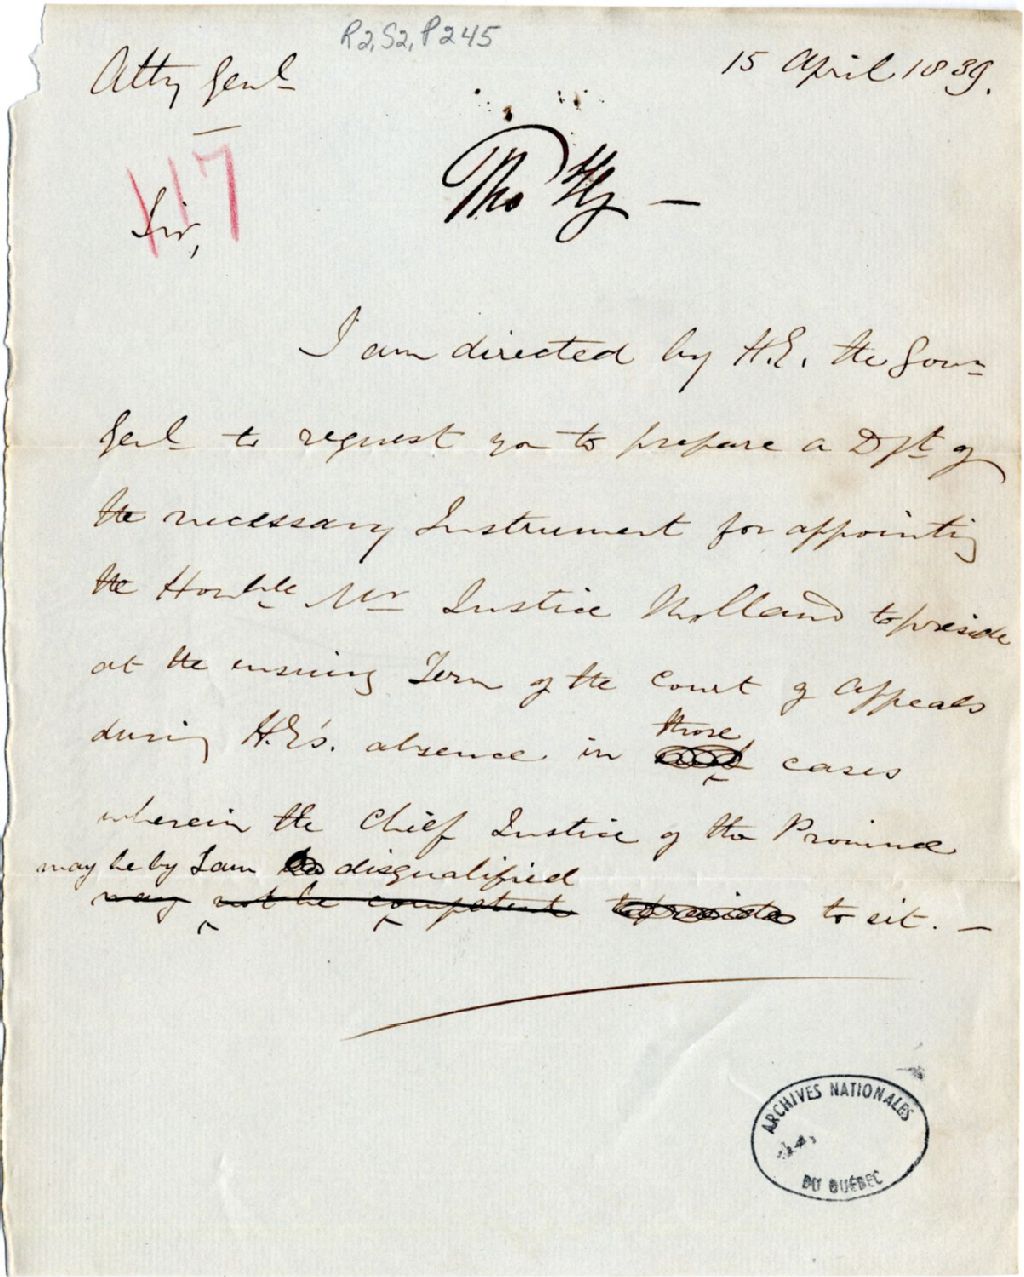 R2,S2,P245
Atty Genl
15 April 1839.
117
Sir,
I am directed by H.E. the Govr
Genl to request you to prepare a Dft of
the necessary Instrument for appointing
the Honble Mr Justice Rolland to preside
at the ensuing Term of the Court of Appeals
during H.E's. absence in those cases
wherein the Chief Justice of the Province
may be by Law disqualified
may not be competent to preside to sit. —
ARCHIVES NATIONALES
DU QUÉBEC